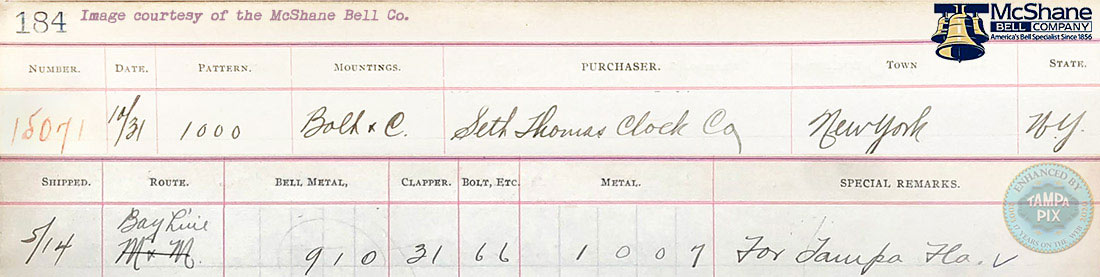 184 Image courtesy of the McShane Bell Co.
McShane
BELL COMPANY
America's Bell Specialist Since 1856
NUMBER. DATE. PATTERN. MOUNTINGS. PURCHASER. TOWN STATE.
15071 12/31 1000 Bolt & C. Seth Thomas Clock Co New York N.Y.
SHIPPED. ROUTE. BELL METAL, CLAPPER. BOLT, ETC. METAL. SPECIAL REMARKS.
Bay Line
5/14 M & M. 910 31 66 1007 For Tampa Fla. ✓
ENHANCED BY
TAMPA
PIX
17 YEARS ON THE WEB